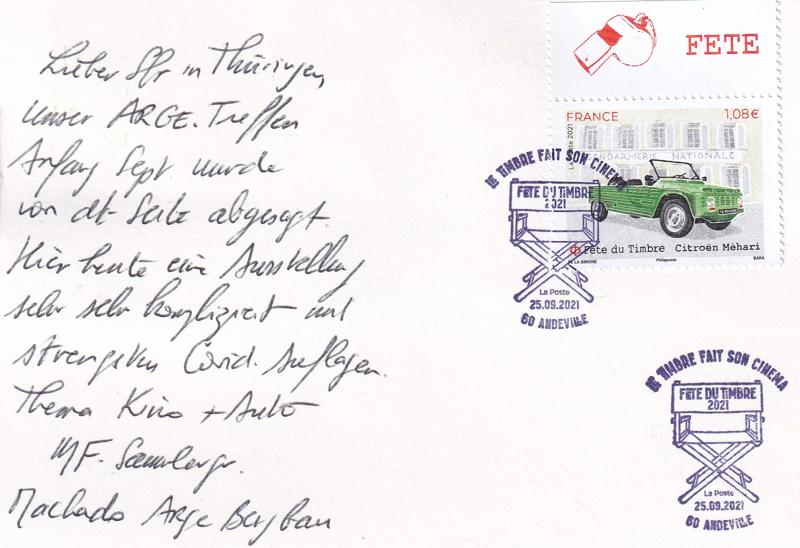 Lieber Sfr in Thüringen,
Unser ARGE.Treffen
Anfang Sept. wurde
von dt. Seite abgesagt.
Hier heute eine Ausstellung
sehr sehr kompliziert mit
strengsten Covid. Auflagen.
Thema Kino + Auto
Mf. Sammlergr.
Machado Arge Bergbau
FETE
FRANCE 1,08€
La Poste 2021
GENDARMERIE NATIONALE
Fête du Timbre Citroën Méhari
Philaposte
LE TIMBRE FAIT SON CINEMA
FÊTE DU TIMBRE
2021
La Poste
25.09.2021
60 ANDEVILLE
LE TIMBRE FAIT SON CINEMA
FÊTE DU TIMBRE
2021
La Poste
25.09.2021
60 ANDEVILLE